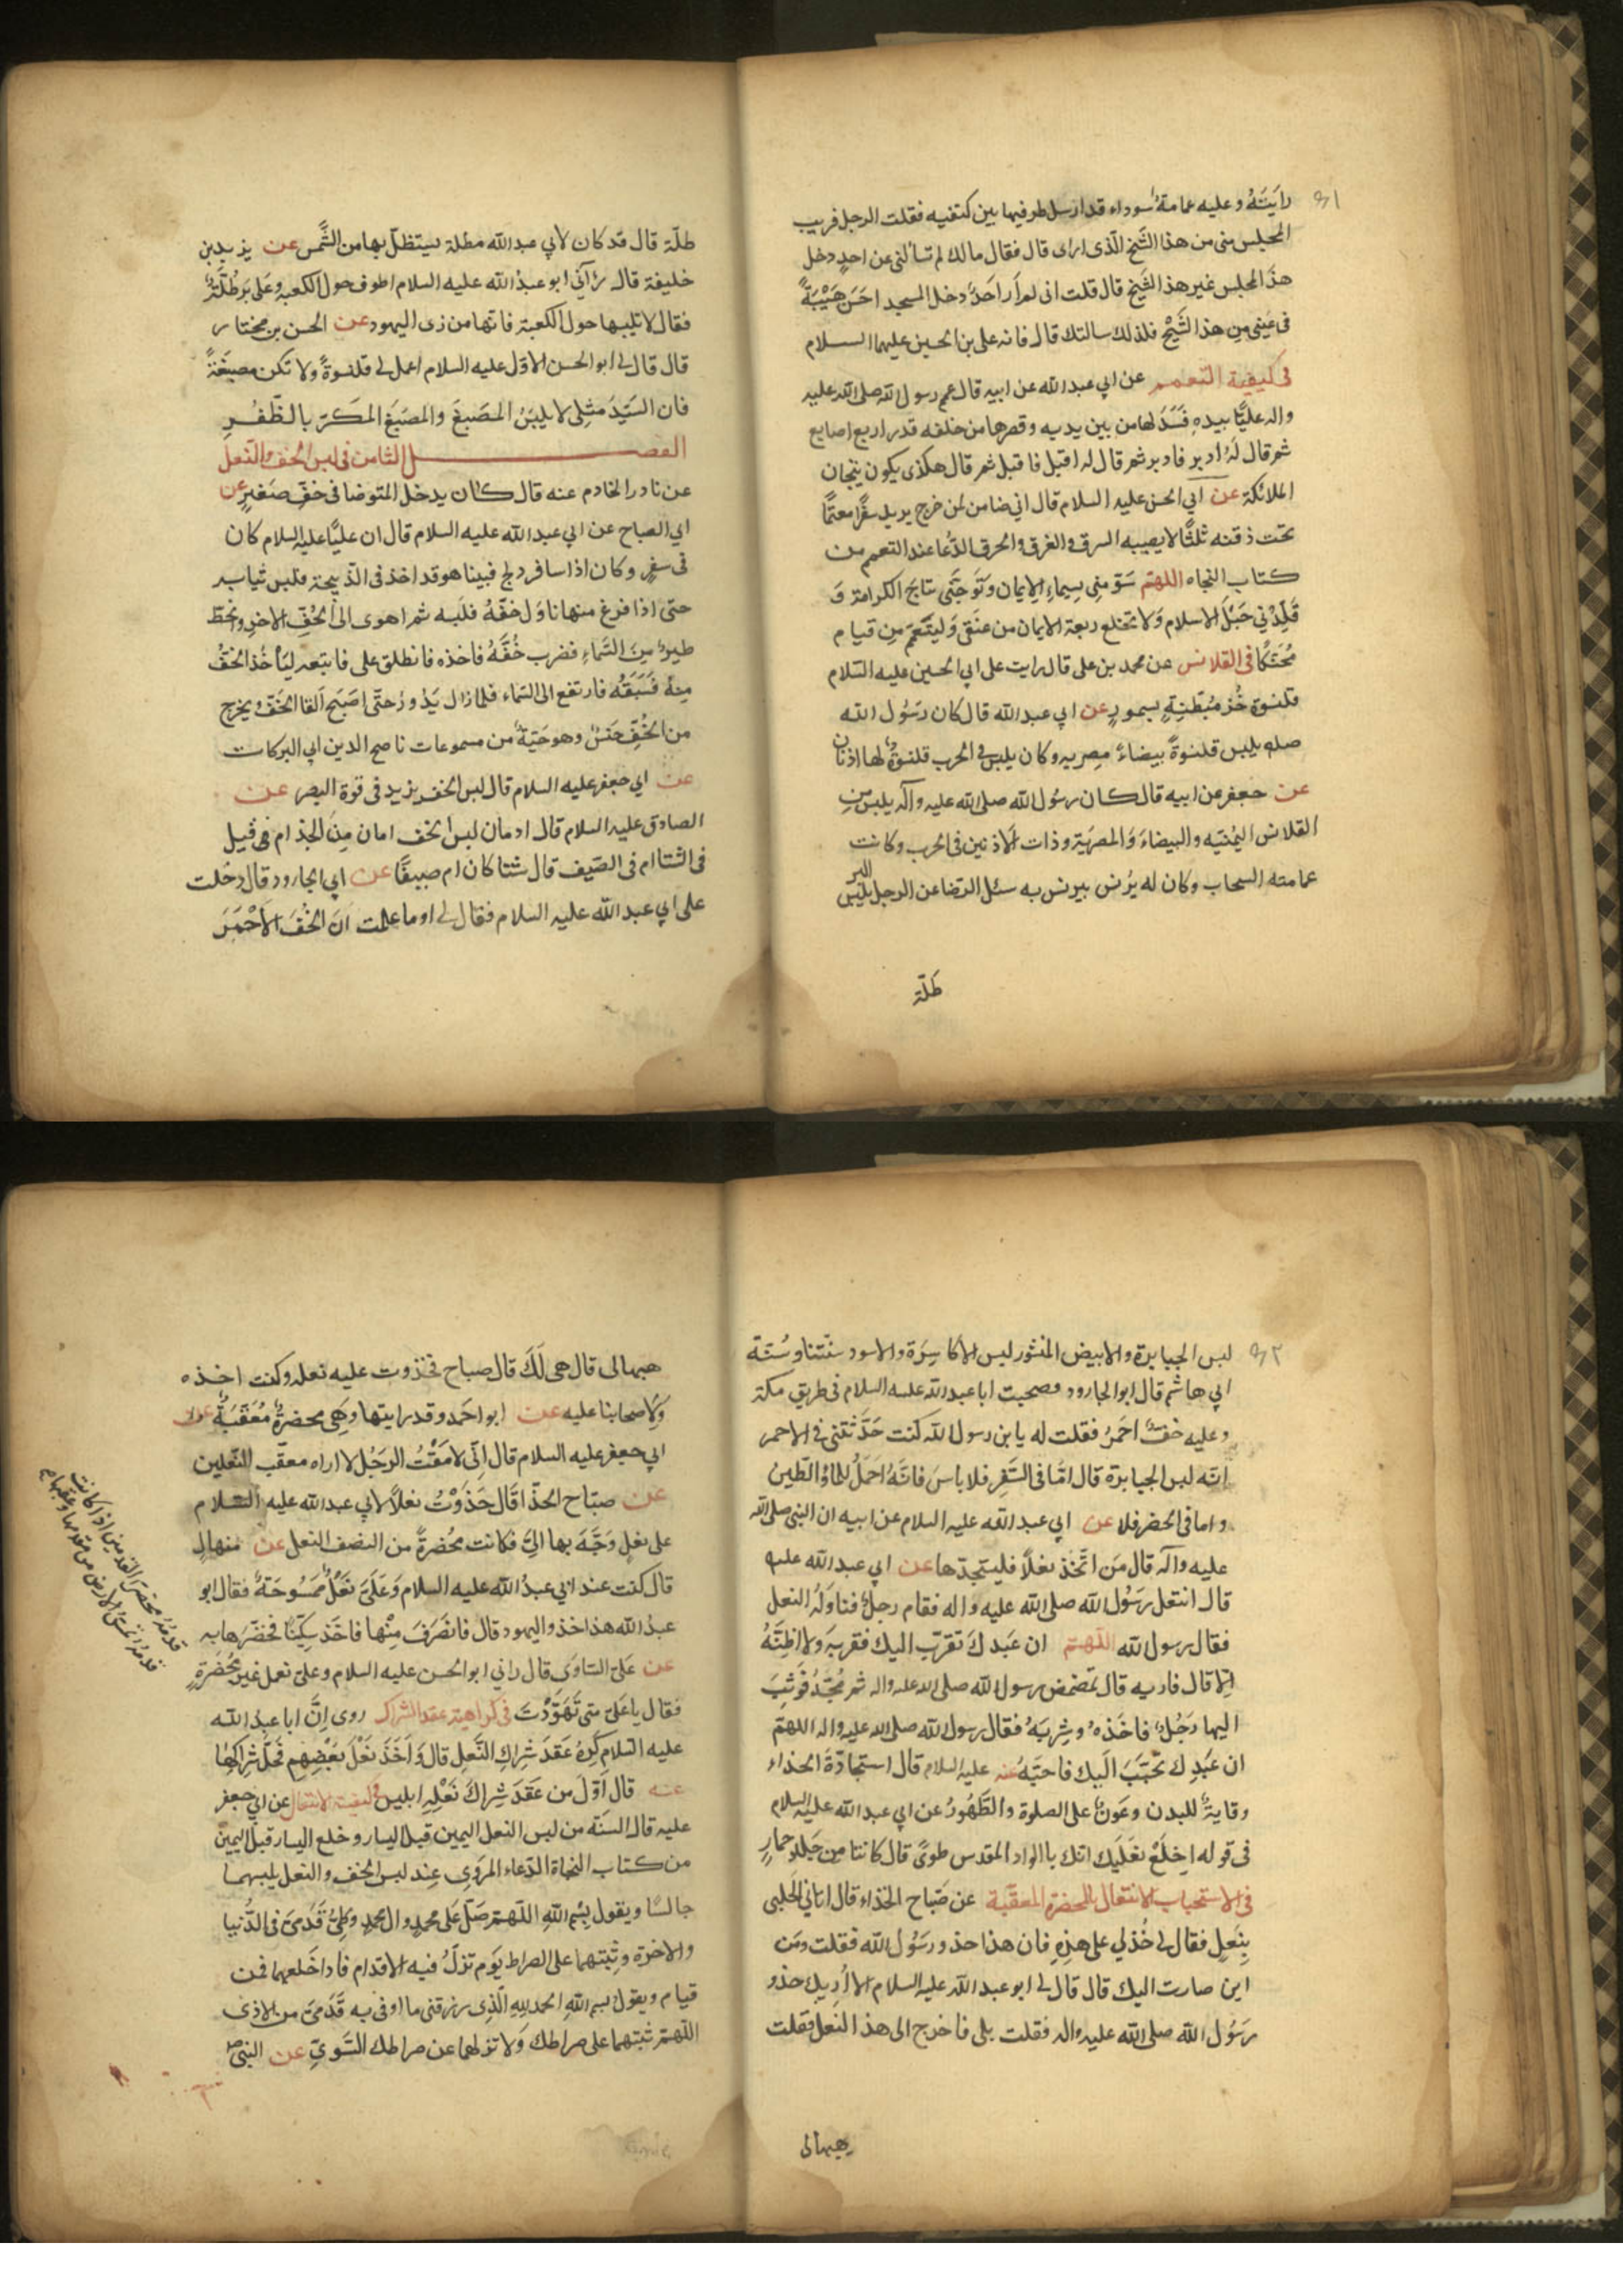 ٤١
رايَتَهُ وعليه عمامةٌ سوداء قد ارسل طرفيها بين كتفيه فقلت الرجل قريب
المجلس منى من هذا الشَّيخ الّذى ارى قال فقال مالك لم تسألنى عن احدٍ دخل
هذَا المجلس غير هذا الشَّيخ قال قلت انى لم أَرَ احَدًا دخل المسجد احَسَن هَيْئَةً
فى عَينى من هذا الشَّيْخ فلذلك سالتك قال فانه على بن الحسين عليهما السلام
فى كيفية التعمم عن ابي عبد الله عن ابيه قال عمم رسول الله صلى الله عليه
واله عليًّا بيدهِ فَسَدَلها من بين يديه وقصرها من خلفه قدر اربع اصابع
ثم قال لهُ ادبر فادبر ثم قال له اقبل فاقبل ثم قال هكذى يكون تيجان
الملائكة عن ابي الحسن عليه السلام قال انى ضامن لمن خرج يريد سفرًا معتمًّا
تحت ذقنه ثلثًا لا يصيبه السرق والغرق والحرق الدُّعا عند التعمم من
كتاب النجاه اللهمّ سَوِّمنِى بِسِيماءِ الايمان وَتَوِّجْنَى بتاج الكرامة وَ
قَلِّدْنِي حَبْلَ الاسلام وَلا تخلع ربقة الايمان من عنَقى وَليتَعَمّم من قيام
مُحَنَّكًا فى القلانس عن محمد بن على قال رايت على ابي الحسين عليه السّلام
قلنسوة خُزّ مُبَطّنةٍ بسمورٍ عن ابي عبد الله قال كان رَسُول الله
صلم يلبس قلنسوةً بيضاءً مصريه وكان يلبس فى الحرب قلنسوةً لها اذنان
عن جعفر عن ابيه قال كان رسُول الله صلى الله عليه وآله يلبس من
القلانس اليمُنيّه والبيضاءَ وَالمصريّة وذات الاذنين فى الحرب وكانت
عمامته السحاب وكان له بُرنس يبرنس به سئل الرّضا عن الرجل يلبس البر
طلّة
طلّة قال قد كان لابي عبد الله مظلة يستظلّ بها من الشَّمس عن يزيد بن
خليفة قال رآنى ابو عبدُ الله عليه السلام اطوف حول الكعبه وَعَلى بَرطُلَّةٌ
فقال لا تلبسها حول الكعبة فانها من زى اليهود عن الحسن بن مختار
قال قال لى ابو الحسن الاوّل عليه السلام اعمل لى قلنسوةً ولا تكن مصبّغَةً
فان السَّيِّدَ مثِلى لا يلبَسُ المصَبغَ والمصَبَغ المكَسّر بالظّفُرِ
الفصل الثامن فى لبس الخف والنّعل
عن نادر الخادم عنه قال كان يدخل المتوضا فى خفٍّ صَغيرٍ عن
ابي الصباح عن ابي عبد الله عليه السلام قال ان عليًّا عليه السلام كان
فى سفرٍ وكان اذا سافر دلج فبينا هو قد اخذ فى الذّبيحة فلبس ثيابه
حتى اذا فرغ منها ناوَل خفّهُ فلَبسه ثم اهوى الى الخُفّ الاخرِ وانحطّ
طيرٌ منَ السَّماءِ فضرب خُفَّهُ فاخذه فانطلق على فاتبعه ليَأخُذ الخفّ
منهُ فَسَبَقَهُ فارتفع الى السّماء فلما زال يَدُورُ حتّى اصَبَحَ القا الخفّ ويخرج
من الخُفِّ حنَشٌ وهو حَيَةٌ من مسموعات ناصح الدين ابي البركات
عن ابي جعفر عليه السلام قال لبس الخف يزيد فى قوة البصر عن
الصادق عليه السلام قال ادمان لبس الخف امان منَ الجذام فى قيل
فى الشتا ام فى الصّيف قال شتا كان ام صيفًا عن ابي الجارود قال دخلت
على ابي عبد الله عليه السلام فقال لى اوما علمت ان الخُفَ الاَحْمَرَ
٤٢
لبس الجبابرة والابيض المنثور لبس الاكاسِرَة والاسود سنّتنا وسُنّة
ابي هاشم قال ابو الجارود وصحبت ابا عبد الله عليه السلام فى طريق مكة
وعليه خفٌّ احَمرُ فقلت له يا بن رسول الله كنت حَدَّثتنى فى الاحمر
انّه لبس الجبابرة قال امّا فى السَّفرِ فلا باسَ فانَّهُ احَمَلُ للماءِ والطّين
واما فى الحضر فلا عن ابي عبد الله عليه السلام عن ابيه ان النبى صلى الله
عليه وآله قال مَن اتّخذ نعلًا فليستجدّها عن ابي عبد الله عليه
قال انتعل رَسُول الله صلى الله عليه واله فقام رجلٌ فناوَلهُ النعل
فقال رسول الله اللّهمّ ان عَبدكَ تقرّب اليك فقربه ولا اظنّهُ
الّا قال فاديه قال تمضمض رسول الله صلى الله عليه واله ثم مُجّهُ فَوثبَ
اليها رَجُلٌ فاخَذهُ وشِربَهُ فقال رسول الله صلى الله عليه واله اللهمّ
ان عَبدك تَحّبَبَ اليك فاحبّهُ عنه عليه السلام قال استجادَةَ الحذاء
وقايةٌ للبدن وعَونٌ على الصلوة والطَّهُورُ عن ابي عبد الله عليه السلام
فى قوله اخِلَعْ نعَلَيك انّك بالواد المقدس طوًى قال كانتا من جلد حمارٍ
فى الاستحباب الانتعال بالمحضرة المعقّبة عن صَبّاح الحَذاء قال اتانى الحَلبى
بِنَعلٍ فقال لى خُذلِي على هذِهِ فان هذا حذو رَسُول الله فقلت ومَن
اين صارت اليك قال قال لى ابو عبد الله عليه السلام الا اُريك حذو
رَسُول الله صلى الله عليه واله فقلت بلى فاخرج الى هذا النَعل فقلت
هبهالى
هبهالى قال هى لَكَ قال صباح فحذوت عليه نعله وكنت اخذه
ولاصحابنا عليه عن ابو احَمد وقد رايتها وهَى محضرةٌ مُعَقّبَةٌ عن
ابي جعفر عليه السلام قال انّى لامقُتُ الرجَلُ لا اراه معقّب النّعلين
عن صبّاح الحذّا قال حَذَوْتُ نعلًا لابي عبد الله عليه السّلام
على نعلٍ وَجَّهَ بها الىَّ فكانت محُضرةً من النصف النعل عن منهالٍ
قال كنت عند ابي عبدُ الله عليه السلام وَعَلَىَّ نَعْلٌ مَمسُوحَةٌ فقال ابو
عبدُ الله هذا حذو اليهود قال فانصَرَفَ مِنْها فاخَذ سكّينًا فخضّرها به
عن علىّ السّاوَى قال رانى ابو الحسن عليه السلام وعلى نعل غير مُحضَرَةٍ
فقال يا علىّ متى تَهَوَّدْتَ فى كراهية عقد الشراك روى انَّ ابا عبدُ الله
عليه السلام كَرِهُ عَقدَ شِراكِ النَّعلِ قالَ وَاَخَذَ نَعْلَ بَعْضِهِم فَحَلّ شِراكَها
عنه قال اَوّلَ من عَقَدَ شِراكَ نَعْلِهِ ابليس فى كيفيّة الانتعال عن ابي جعفر
عليه قال السنّة من لبس النعل اليمين قبل اليسار وخلع اليسار قبل اليمين
من كتاب النجاة الدّعاء المروَى عند لبس الخف والنعل يلبسهما
جالسًا ويقول بِسْمِ اللهِ اللّهمّ صَلِّ عَلى محمدٍ وال محمدٍ وَطّئ قَدَمىَّ فى الدُّنيا
والاخرة وثَبّتهما على الصراط يَوم تزلُّ فيه الاقدام فاذا خَلعهما فمن
قيام ويقول بسم اللهِ الحمد للهِ الَّذِى رزقنى ما اوقى به قَدَمىَّ من الاذى
اللهمّ ثبّتهما على صراطك وَلا تزلهما عن صراطك السَّوىّ عن النبىّ